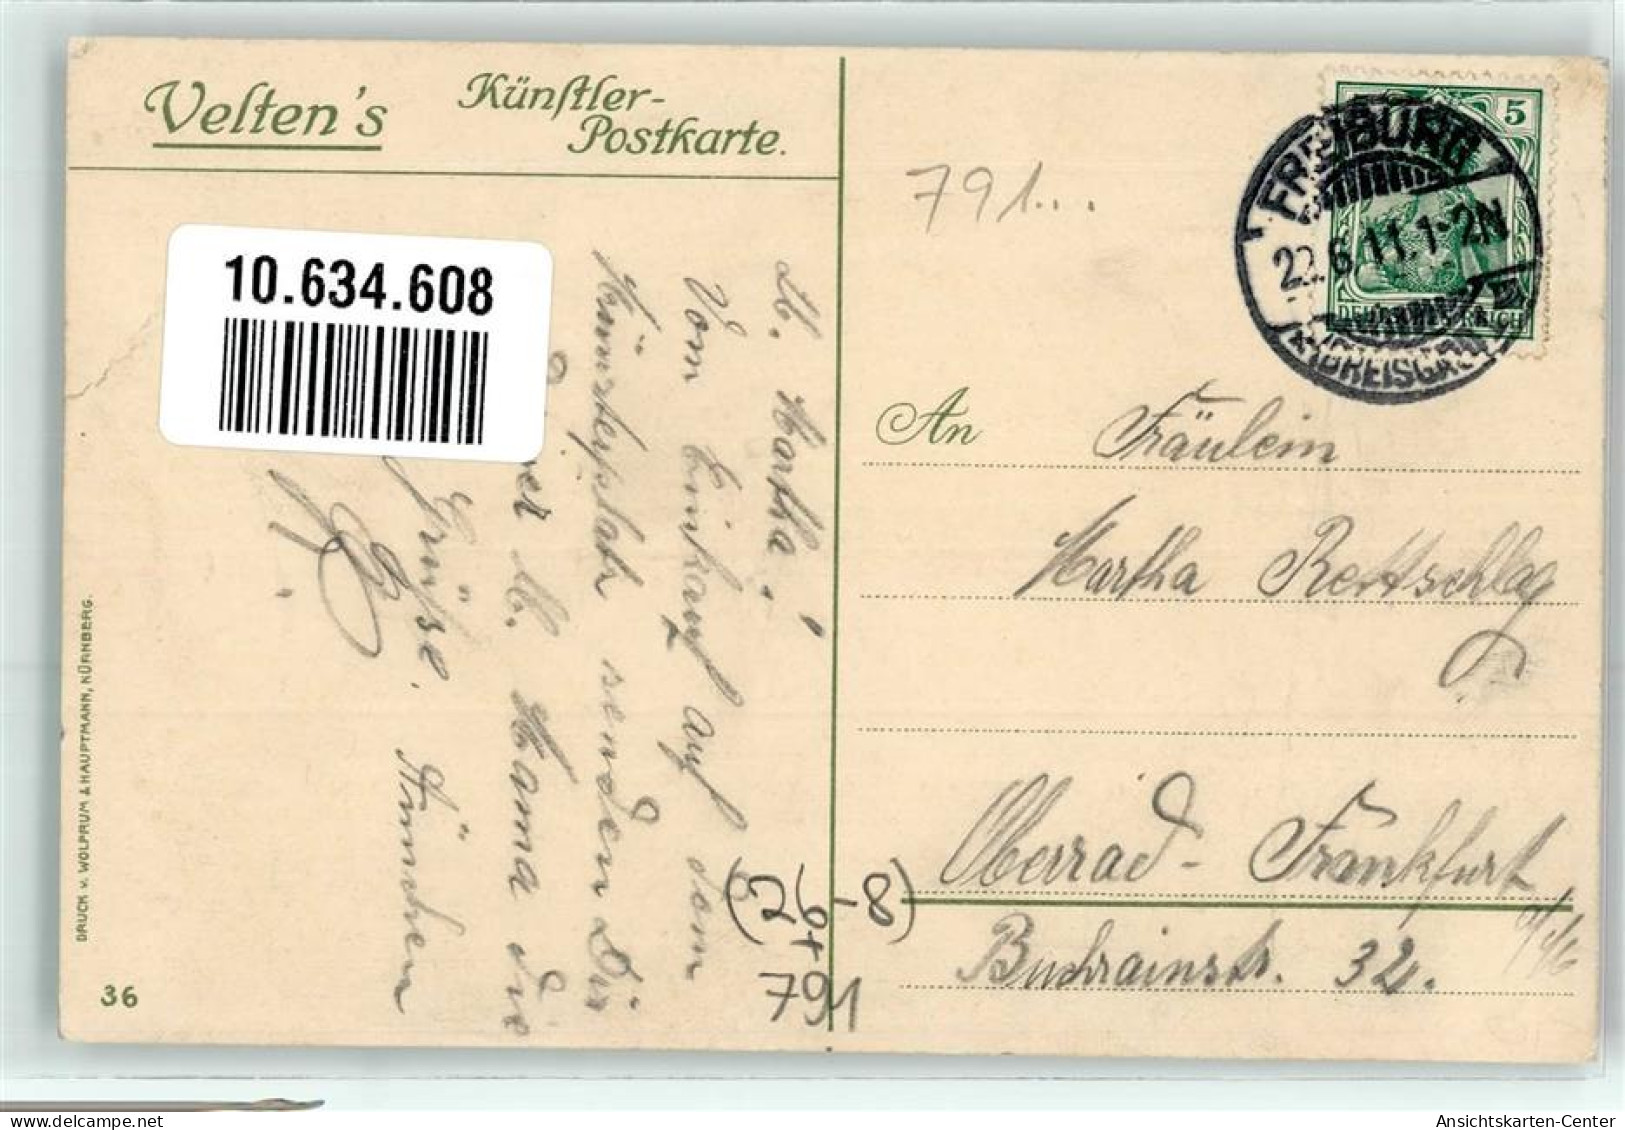 Velten's
Künstler-
Postkarte.
10.634.608
L. Martha!
Vom Einkauf auf dem
Münsterplatz senden Dir
Mama die
Grüße.
FREIBURG
22.6.11.1-2N
(BREISGAU)
5
DEUTSCHES REICH
791...
An Fräulein
Martha Rettschlag
Oberrad-Frankfurt
Buchrainstr. 32.
(26-8)
791
DRUCK v. WOLFRUM & HAUPTMANN, NÜRNBERG.
36
Ansichtskarten-Center